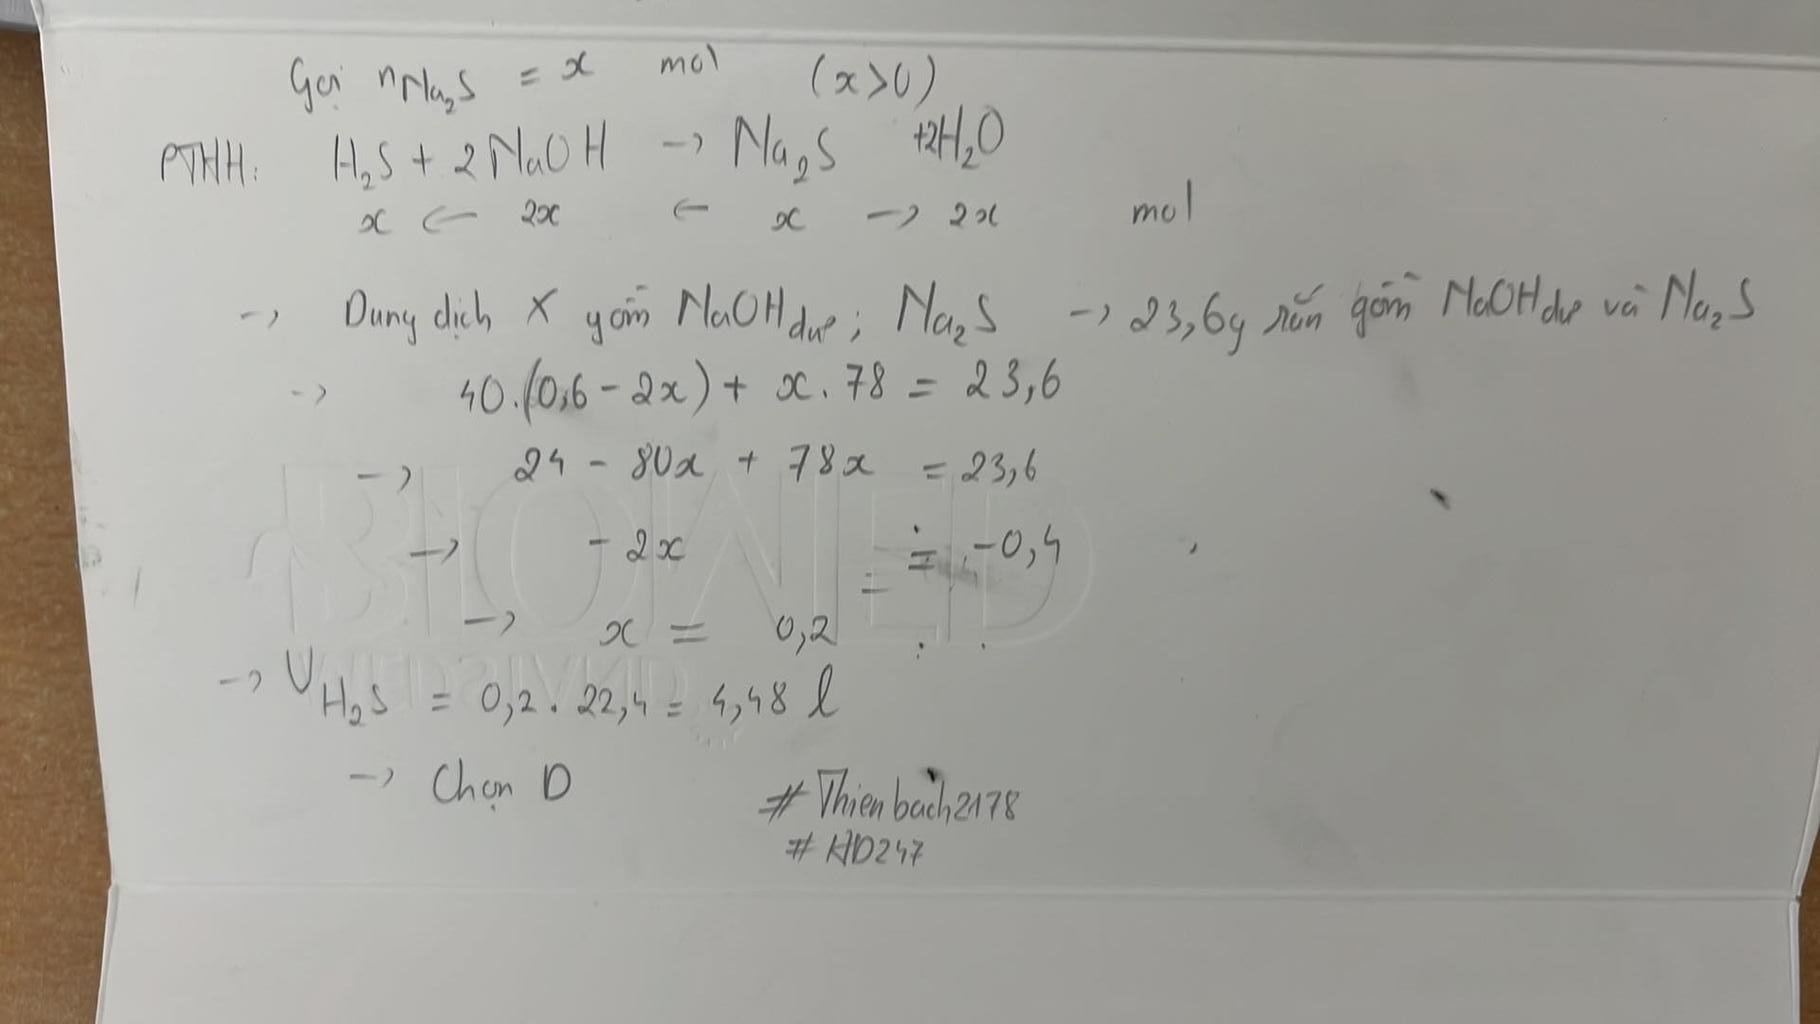 Gọi nNa₂S = x mol (x>0)
PTHH: H₂S + 2NaOH → Na₂S +2H₂O
x ← 2x ← x → 2x mol
→ Dung dịch X gồm NaOH dư; Na₂S → 23,6g rắn gồm NaOH dư và Na₂S
→ 40.(0,6 - 2x) + x.78 = 23,6
→ 24 - 80x + 78x = 23,6
→ - 2x = -0,4
→ x = 0,2
→ V H₂S = 0,2.22,4 = 4,48 l
→ Chọn D
#Thienbach2178
#HD247